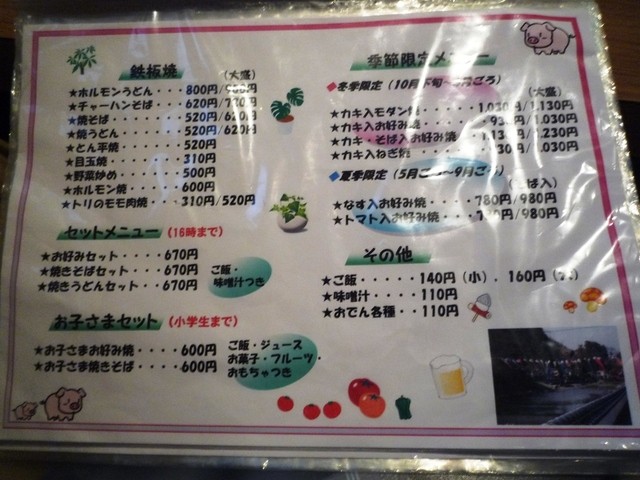 鉄板焼 (大盛)
★ホルモンうどん・・・800円/900円
★チャーハンそば・・・620円/720円
★焼そば・・・・・・・520円/620円
★焼うどん・・・・・・520円/620円
★とん平焼・・・・・・520円
★目玉焼・・・・・・・310円
★野菜炒め・・・・・・500円
★ホルモン焼・・・・・600円
★トリのモモ肉焼・・・310円/520円
セットメニュー (16時まで)
★お好みセット・・・・670円
★焼きそばセット・・・670円
★焼きうどんセット・・670円
ご飯・
味噌汁つき
お子さまセット (小学生まで)
★お子さまお好み焼・・・・600円
★お子さま焼きそば・・・・600円
ご飯・ジュース
お菓子・フルーツ・
おもちゃつき
季節限定メニュー
◆冬季限定 (10月下旬~ 月ごろ)
(大盛)
★カキ入モダン焼・・・・1,030円/1,130円
★カキ入お好み焼・・・・93 円/1,030円
★カキ・そば入お好み焼・・1,13 円/1,230円
★カキ入ねぎ焼・・・・ 30円/1,030円
◆夏季限定 (5月ごろ~9月ごろ)
(そば入)
★なす入お好み焼・・・・780円/980円
★トマト入お好み焼・・・ 円/980円
その他
★ご飯・・・・・140円(小)、160円
★味噌汁・・・・110円
★おでん各種・・110円